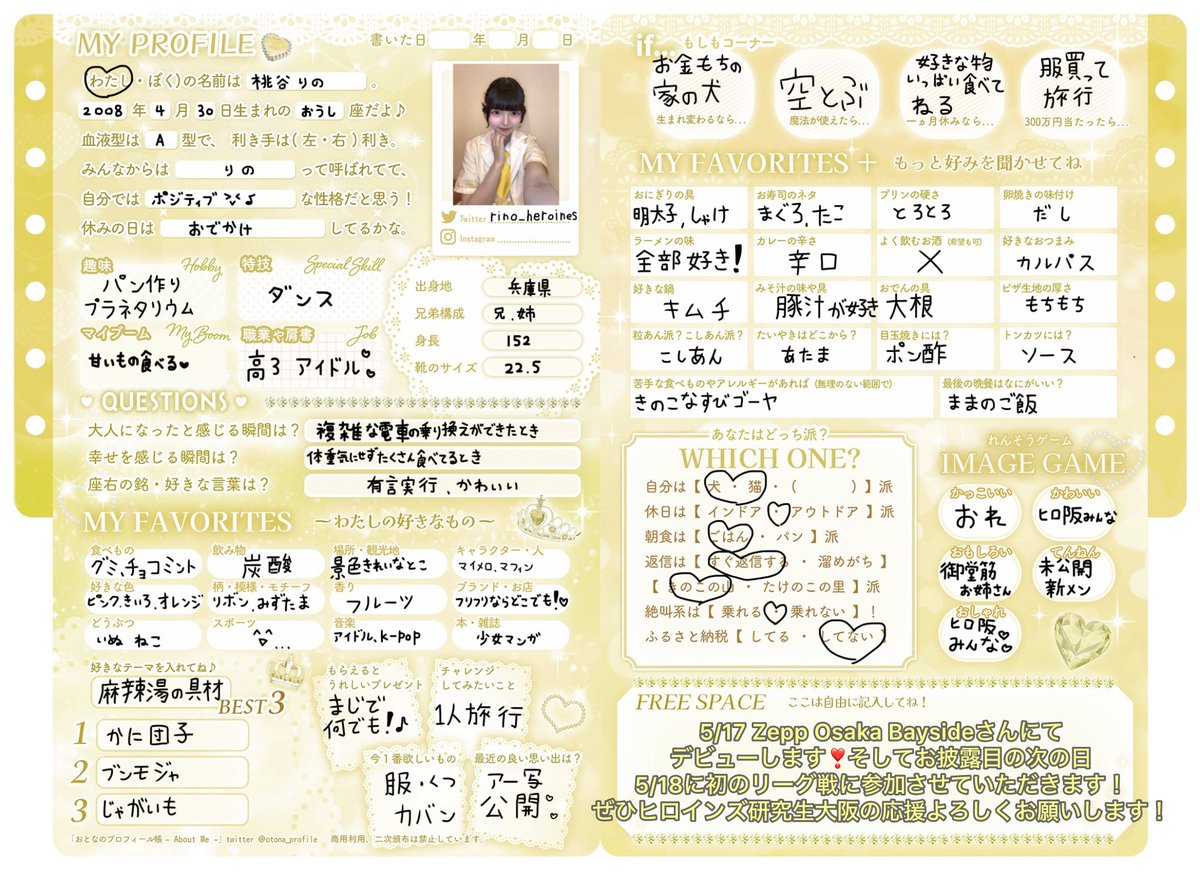 MY PROFILE
書いた日 年 月 日
(わたし・ぼく)の名前は 桃谷りの 。
2008 年 4 月 30 日生まれの おうし 座だよ♪
血液型は A 型で、 利き手は(左・右)利き。
みんなからは りの って呼ばれてて、
自分では ポジティブ な性格だと思う！
休みの日は おでかけ してるかな。
Twitter rino_heroines
Instagram
趣味 Hobby
パン作り
プラネタリウム
特技 Special Skill
ダンス
マイブーム My Boom
甘いもの食べる♥
職業や肩書 Job
高3 アイドル♡
出身地 兵庫県
兄弟構成 兄.姉
身長 152
靴のサイズ 22.5
♥ QUESTIONS ♥
大人になったと感じる瞬間は？ 複雑な電車の乗り換えができたとき
幸せを感じる瞬間は？ 体重気にせずたくさん食べてるとき
座右の銘・好きな言葉は？ 有言実行、かわいい
MY FAVORITES ～わたしの好きなもの～
食べもの 飲み物 場所・観光地 キャラクター・人
グミ、チョコミント 炭酸 景色きれいなとこ マイメロ、マフィン
好きな色 柄・模様・モチーフ 香り ブランド・お店
ピンク、きいろ、オレンジ リボン、みずたま フルーツ フリフリならどこでも!♡
どうぶつ スポーツ 音楽 本・雑誌
いぬ ねこ ^^... アイドル、K-POP 少女マンガ
好きなテーマを入れてね♪
麻辣湯の具材
BEST3
1 かに団子
2 ブンモジャ
3 じゃがいも
もらえると
うれしいプレゼント
まじで
何でも!♪
チャレンジ
してみたいこと
1人旅行
今1番欲しいもの
服・くつ
カバン
最近の良い思い出は？
アー写
公開♡
「おとなのプロフィール帳 - About Me -」twitter @otona_profile 商用利用、二次頒布は禁止しています。
if... もしもコーナー
お金もちの
家の犬
生まれ変わるなら...
空とぶ
魔法が使えたら...
好きな物
いっぱい食べて
ねる
一ヵ月休みなら...
服買って
旅行
300万円当たったら...
MY FAVORITES + もっと好みを聞かせてね
おにぎりの具 お寿司のネタ プリンの硬さ 卵焼きの味付け
明太子,しゃけ まぐろ,たこ とろとろ だし
ラーメンの味 カレーの辛さ よく飲むお酒 (希望も可) 好きなおつまみ
全部好き! 辛口 × カルパス
好きな鍋 みそ汁の味や具 おでんの具 ピザ生地の厚さ
キムチ 豚汁が好き 大根 もちもち
粒あん派？こしあん派？ たいやきはどこから？ 目玉焼きには？ トンカツには？
こしあん あたま ポン酢 ソース
苦手な食べものやアレルギーがあれば (無理のない範囲で) 最後の晩餐はなにがいい？
きのこなすびゴーヤ ままのご飯
あなたはどっち派？
WHICH ONE?
自分は【 犬 ・ 猫 ・ ( ) 】派
休日は【 インドア ・ アウトドア 】派
朝食は【 ごはん ・ パン 】派
返信は【 すぐ返信する ・ 溜めがち 】
【 きのこの山 ・ たけのこの里 】派
絶叫系は【 乗れる ・ 乗れない 】！
ふるさと納税【 してる ・ してない 】
れんそうゲーム
IMAGE GAME
かっこいい
おれ
かわいい
ヒロ阪みんな
おもしろい
御堂筋
お姉さん
てんねん
未公開
新メン
おしゃれ
ヒロ阪
みんな♡
FREE SPACE ここは自由に記入してね！
5/17 Zepp Osaka Baysideさんにて
デビューします❣️そしてお披露目の次の日
5/18に初のリーグ戦に参加させていただきます！
ぜひヒロインズ研究生大阪の応援よろしくお願いします！